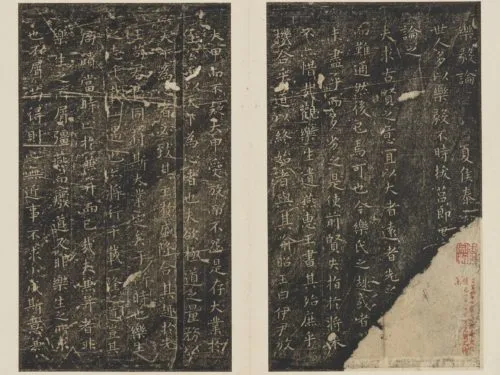 樂毅論 夏侯泰
世人多以樂毅不時拔莒即墨
論之
夫求古賢之意宜以大者遠者先之
而難通然後已焉可也今樂氏之趣或者
未盡乎而多劣之是使前賢失指於將來
不惜哉觀樂生遺燕惠王書其殆庶乎
機合乎道以終始者與其喻昭王曰伊尹放
大甲而不疑大甲受放而不怨是存大業於
至公而以天下為心者也夫欲極道之量務以
天下為心者必致其主於盛隆合其趣於先
王苟君臣同符斯大業定矣于斯時也樂生
之志千載一遇也亦將行千載一隆之道豈
局蹟當時止於兼并而已哉夫兼并者非
樂生之所屑彊燕而廢道又非樂生之所求
也不屑苟得則心無近事不求小成斯意兼